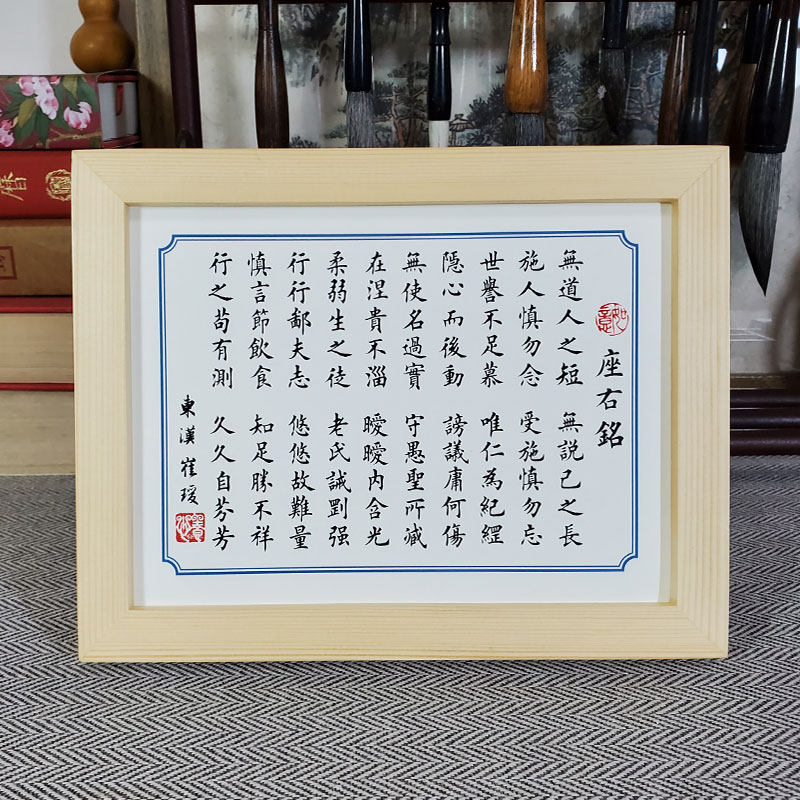 如意
座右銘
無道人之短 無說己之長
施人慎勿念 受施慎勿忘
世譽不足慕 唯仁為紀
隱心而後動 謗議庸何傷
無使名過實 守愚聖所臧
在涅貴不淄 曖曖內含光
柔弱生之徒 老氏誡剛强
行行鄙夫志 悠悠故難量
慎言節飲食 知足勝不祥
行之苟有測 久久自芬芳
東漢 崔瑗